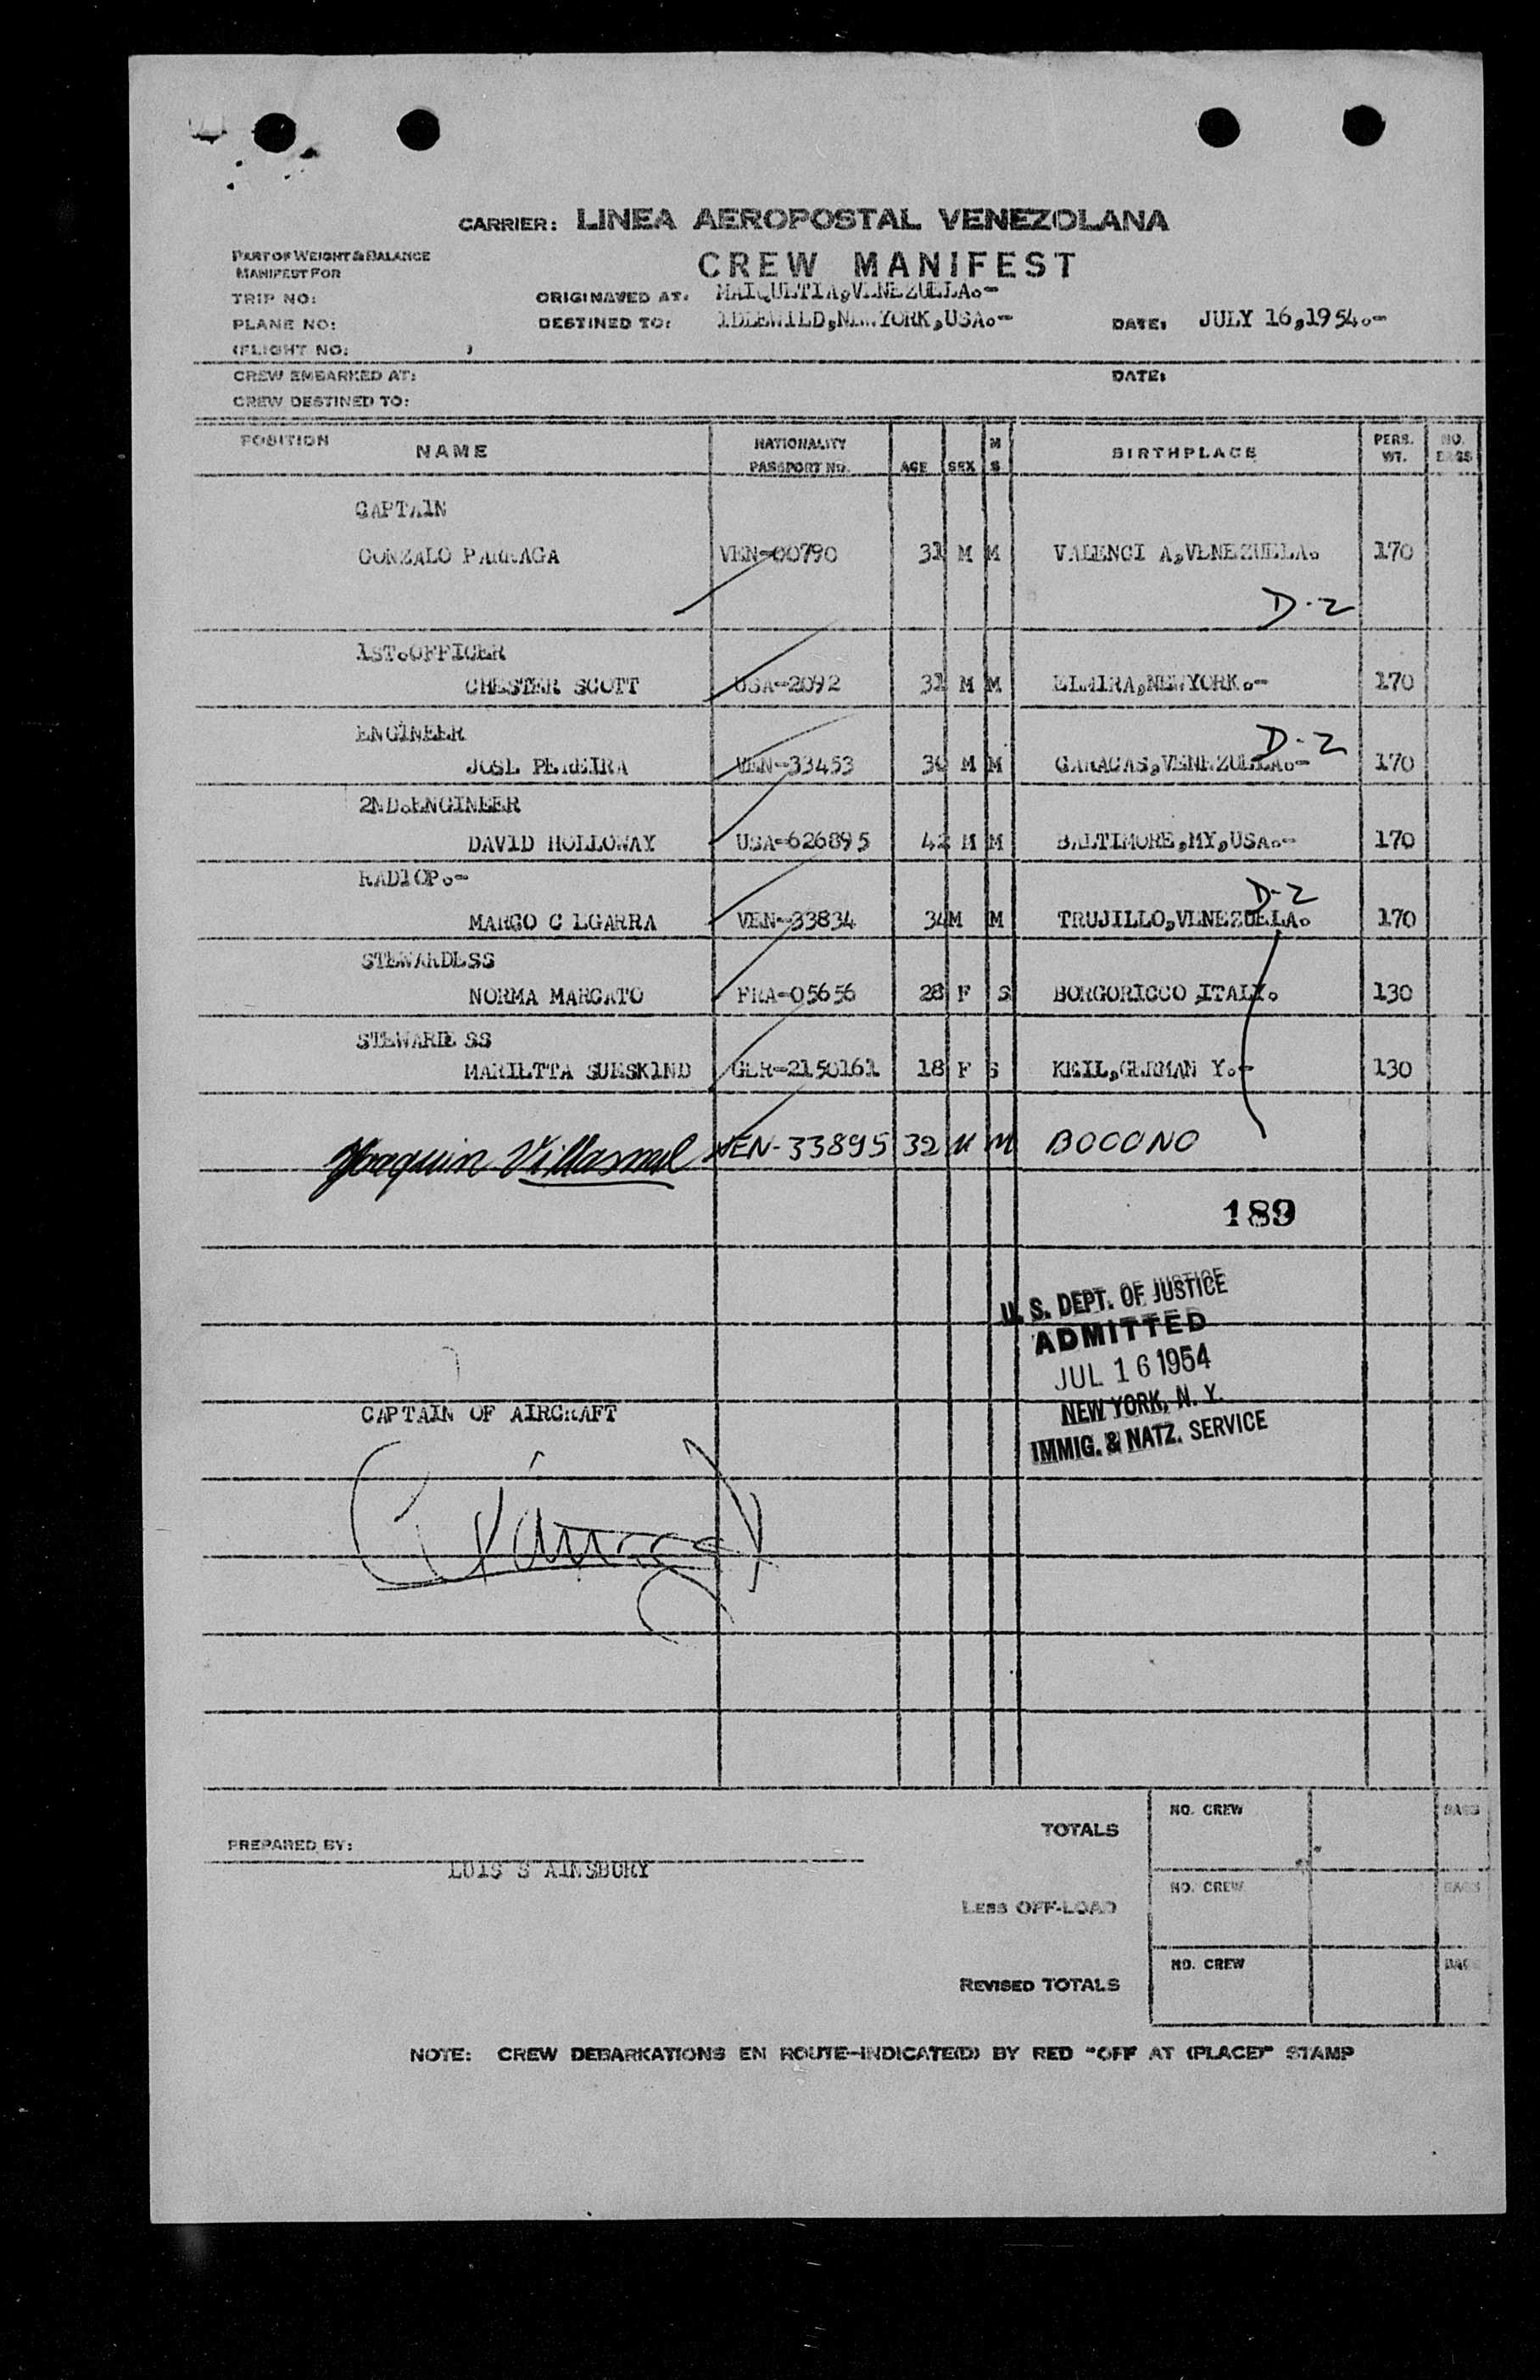 CARRIER: LINEA AEROPOSTAL VENEZOLANA
PART OF WEIGHT & BALANCE
MANIFEST FOR
CREW MANIFEST
TRIP NO: ORIGINATED AT: MAIQUETIA,VENEZUELA.-
PLANE NO: DESTINED TO: IDLEWILD,NEW YORK,USA.- DATE: JULY 16,1954.-
(FLIGHT NO: )
CREW EMBARKED AT: DATE:
CREW DESTINED TO:
POSITION NAME NATIONALITY PASSPORT NO. AGE SEX M S BIRTHPLACE PERS. WT. NO. BAGS
CAPTAIN
GONZALO PARRAGA VEN-00790 31 M M VALENCI A,VENEZUELA. 170
D-2
1ST.OFFICER
CHESTER SCOTT USA-2092 31 M M ELMIRA,NEWYORK.- 170
ENGINEER
D-2
JOSE PEREIRA VEN-33453 30 M M CARACAS,VENEZUELA.- 170
2ND.ENGINEER
DAVID HOLLOWAY USA-626895 42 M M BALTIMORE,MY,USA.- 170
RADIOP.-
D-2
MARCO C LGARRA VEN-33834 34 M M TRUJILLO,VENEZUELA. 170
STEWARDESS
NORMA MARCATO FRA-05656 28 F S BORGORICCO ITALY. 130
STEWARDE SS
MARIETTA SUESKIND GER-2150161 18 F S KEIL,GERMAN Y.- 130
Joaquin Villasmil VEN-33895 32 M M BOCONO
189
U. S. DEPT. OF JUSTICE
ADMITTED
JUL 16 1954
NEW YORK, N. Y.
IMMIG. & NATZ. SERVICE
CAPTAIN OF AIRCRAFT
TOTALS NO. CREW BAGS
PREPARED BY:
LUIS S AINSBURY
LESS OFF-LOAD NO. CREW BAGS
REVISED TOTALS NO. CREW BAGS
NOTE: CREW DEBARKATIONS EN ROUTE-INDICATE(D) BY RED "OFF AT (PLACE)" STAMP